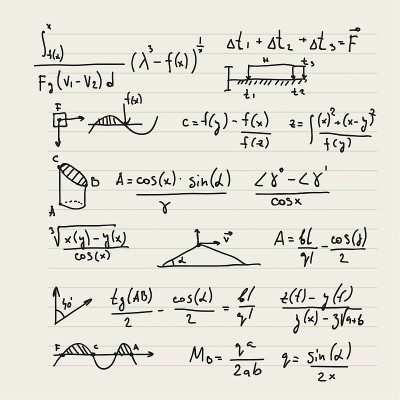 ∫ₓ f(x) / Fg(v₁-v₂)d (λ³-f(x))^(1/x) Δt₁ + Δt₂ + Δt₃ = F⃗
H t₃ t₁ t₂
F f(x) c = f(y) - f(x)/f(z) z = ∫ (x)²+(x-y)²/f(y)
C B A A = cos(x)·sin(α)/γ ∠γ° - ∠γ'/cosx
³√x(y)-y(x)/cos(x) α v⃗ A = bl/ql - cos(y)/2
40° tg(AB)/2 - cos(α)/2 = bl/ql z(f)-y(f)/y(x)-3√a+b
F C A M₀ = qa/2ab q = sin(α)/2x